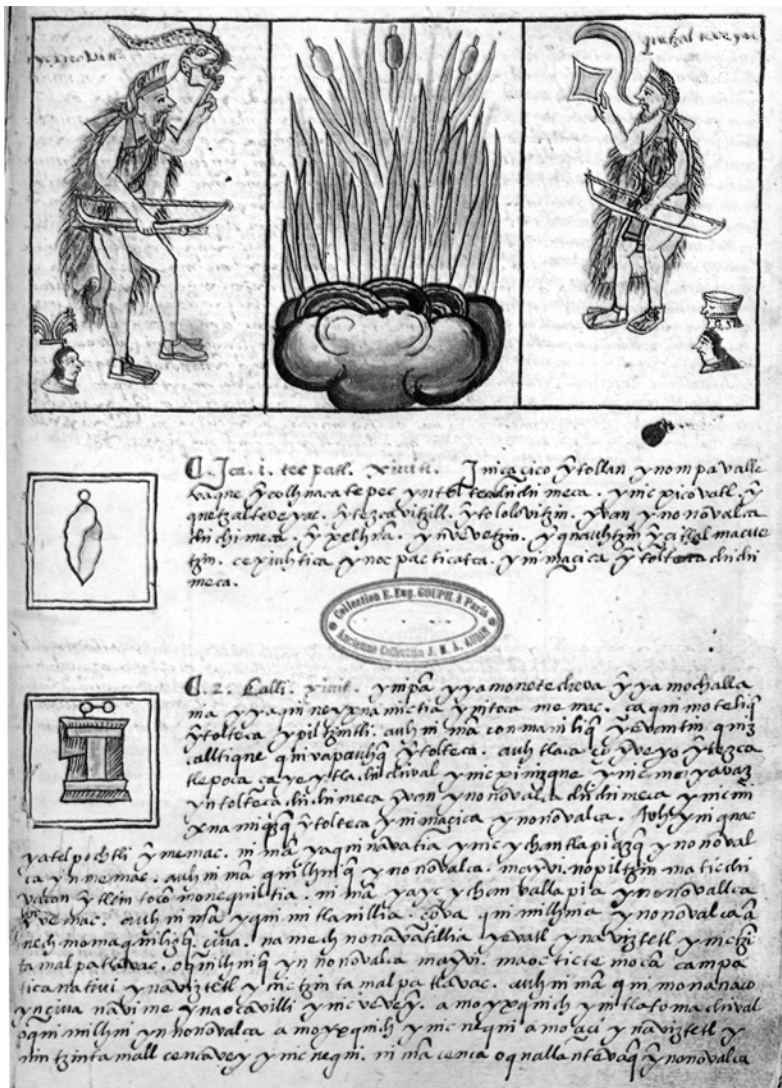 quetzalteueyac
C. Ica .i. tecpatl. xiuitl. Inicacico ỹtollan ynompa valle
vaque ỹcolhuacatepec yntoltecachichimeca. ynicxicovatl. ỹ
quetzalteveyac. ỹtezcavitzill. ỹtololovitzin. ỹvan ynonovalca
chichimeca. ỹxelhua. ynvevetzin. ỹquauhtzin ỹcitlalmacue
tzin. cexiuhtica ynoc pacticatca. ynimacica ỹtolteca chichi
meca.
Collection E. Eug. GOUPIL à Paris
Ancienne Collection J. M. A. AUBIN
C. 2. Calli. xiuit. ympã yyamonetecheva ỹyamochalla
nia yyaquineyxnamictia ỹnitoca vemac. ca quimotelliq̃
ỹtolteca ypiltzintli. auh nimã conmananilliq̃ ỹevantin quiz
calltique quivapauhq̃ ỹtolteca. auh tlaca ỹtezca
tlepoca ytlachichival ynicpinizque ynicmoyavaz
yntolteca chichimeca ỹvan ynonovalca chichimeca ynicmi
xnamiquizq̃ ỹtolteca ynimacica ynonovalca. Auh yniquac
yatelpochtli ỹvemac. nimã yaquinavatia ynicychantlapiazq̃ ynonoval
ca ynvemac. auh nimã quilhuiq̃ ynonovalca. mayvi. nopiltzin maticchi
vacan ỹtlein tocõmonequiltia. nimã yayc ychan vallapia ynonovallca
ỹvemac. auh nimã yquimitlanillia. çova quimilhuia ynonovalca ã
nechmomaquilizq̃. çiva. namechnonavatillia yevatl ynaviztetl ynictzĩ
tamalpatlavac. oquilhuiq̃ ynnonovalca mayvi. maoc tictemocã campa
ticanativi ynaviztetl ynictzintamalpatlavac. auh nimã quimonanaco
ynçiva navime ynaocavilli ynicvevey. amo yxquich ynitlatomachival
oquimilhui ynnonovalca amo yxquich ynicnequi amo açi ynaviztetl y
nintzintamall cenca vey ynicnequi. nimã cenca oquallãntevaq̃ ỹnonovalca